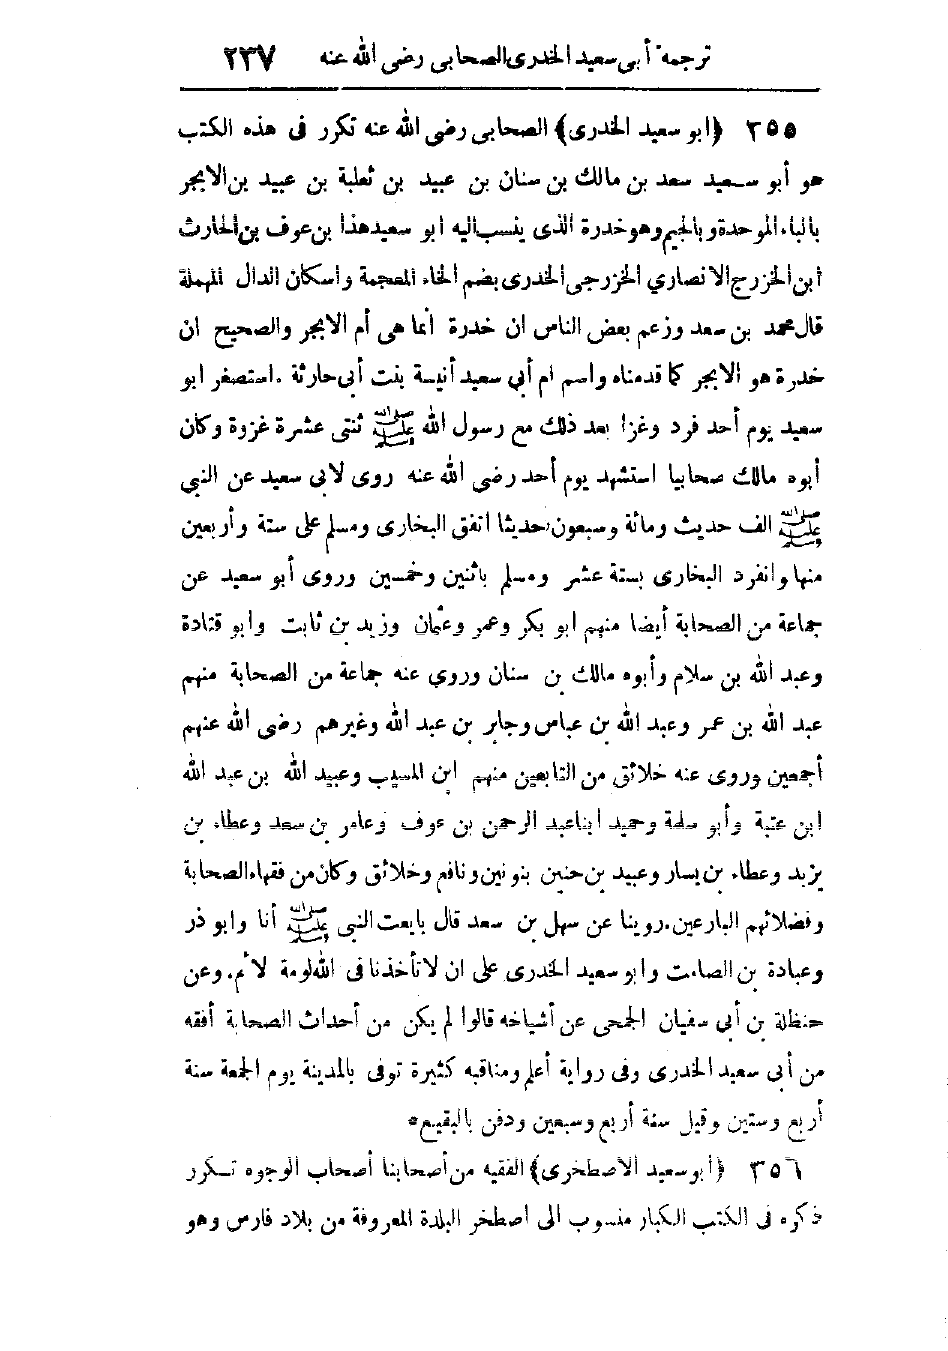 ترجمة أبى سعيد الخدرى الصحابى رضى الله عنه ٢٣٧
٣٥٥ ﴿ابو سعيد الخدرى﴾ الصحابى رضى الله عنه تكرر فى هذه الكتب
هو أبو سعيد سعد بن مالك بن سنان بن عبيد بن ثعلبة بن عبيد بن الابجر
بالباء الموحدة وبالجيم وهو خدرة الذى ينسب اليه ابو سعيد هذا بن عوف بن الحارث
ابن الخزرج الانصاري الخزرجى الخدرى بضم الخاء المعجمة واسكان الدال المهملة
قال محمد بن سعد وزعم بعض الناس ان خدرة انما هى أم الابجر والصحيح ان
خدرة هو الابجر كما قدمناه واسم ام أبي سعيد أنيسة بنت أبى حارثة . استصغر ابو
سعيد يوم أحد فرد وغزا بعد ذلك مع رسول الله ﷺ ثنتى عشرة غزوة وكان
أبوه مالك صحابيا استشهد يوم أحد رضى الله عنه روى لابى سعيد عن النبي
ﷺ الف حديث ومائة وسبعون حديثا اتفق البخارى ومسلم على ستة وأربعين
منها وانفرد البخارى بستة عشر ومسلم باثنين وخمسين وروى أبو سعيد عن
جماعة من الصحابة أيضا منهم ابو بكر وعمر وعثمان وزيد بن ثابت وابو قتادة
وعبد الله بن سلام وأبوه مالك بن سنان وروي عنه جماعة من الصحابة منهم
عبد الله بن عمر وعبد الله بن عباس وجابر بن عبد الله وغيرهم رضى الله عنهم
أجمعين وروى عنه خلائق من التابعين منهم ابن المسيب وعبيد الله بن عبد الله
ابن عتبة وأبو سلمة وحميد ابنا عبد الرحمن بن عوف وعامر بن سعد وعطاء بن
يزيد وعطاء بن يسار وعبيد بن حنين بنونين ونافع وخلائق وكان من فقهاء الصحابة
وفضلائهم البارعين. روينا عن سهل بن سعد قال بايعت النبى ﷺ أنا وابو ذر
وعبادة بن الصامت وابو سعيد الخدرى على ان لا تأخذنا فى الله لومة لائم. وعن
حنظلة بن أبي سفيان الجمحى عن أشياخه قالوا لم يكن من أحداث الصحابة أفقه
من أبى سعيد الخدرى وفى رواية أعلم ومناقبه كثيرة توفى بالمدينة يوم الجمعة سنة
أربع وستين وقيل سنة أربع وسبعين ودفن بالبقيع*
٣٥٦ ﴿أبو سعيد الاصطخرى﴾ الفقيه من أصحابنا أصحاب الوجوه تكرر
ذكره فى الكتب الكبار منسوب الى اصطخر البلدة المعروفة من بلاد فارس وهو